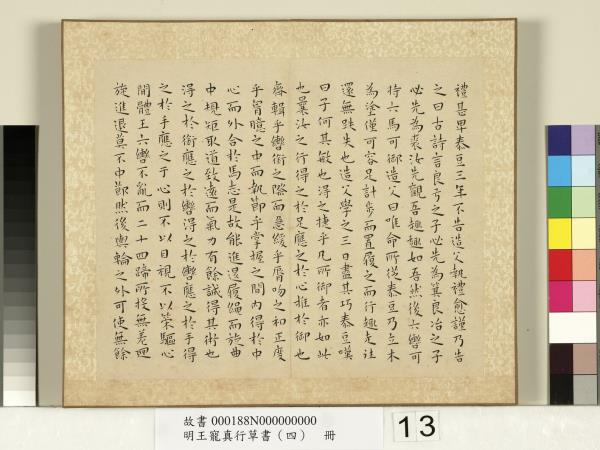 禮甚卑泰豆三年不告造父執禮愈謹乃告
之曰古詩言良弓之子必先為箕良冶之子
必先為裘汝先觀吾趣趣如吾然後六轡可
持六馬可御造父曰唯命所從泰豆乃立木
為塗僅可容足計步而置履之而行趣走往
還無跌失也造父學之三日盡其巧泰豆嘆
曰子何其敏也得之捷乎凡所御者亦如此
也曩汝之行得之於足應之於心推於御也
齊輯乎轡銜之際而急緩乎脣吻之和正度
乎胷臆之中而執節乎掌握之間內得於中
心而外合於馬志是故能進退履繩而旋曲
中規矩取道致遠而氣力有餘誠得其術也
得之於銜應之於轡得之於轡應之於手得
之於手應之于心則不以目視不以策驅心
閒體正六轡不亂而二十四蹄所投無差迴
旋進退莫不中節然後輿輪之外可使無餘
故書 000188N000000000
明王寵真行草書（四） 冊
13